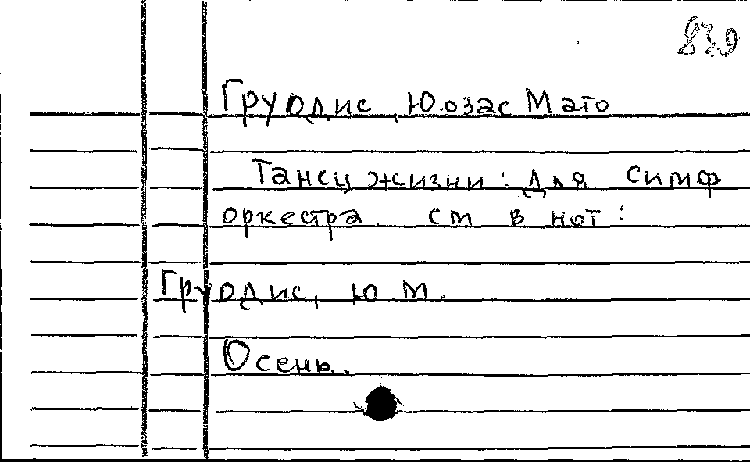 839
Груодис, Юозас Мато
Танец жизни: для симф
оркестра. см в нот:
Груодис, Ю М.
Осень.